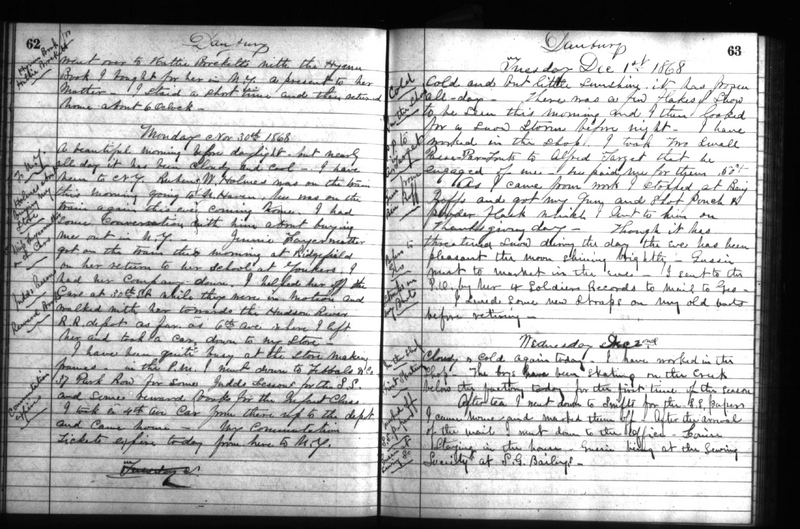 62
Danbury
Hymn Book for
Hattie Brockett
went over to Hattie Brocketts with the Hymn
Book I bought for her in N.Y. a present to her
Mother - I staid a short time and then returned
home about 6 Oclock -
Monday Nov 30th 1868
A beautiful morning when day light - but nearly
all day it has been Cloudy and Cool - I have
been to N.Y. Ruben W. Holmes was on the train
this morning going to N. Haven, he was on the
train again this eve coming home. I had
some Conversation with him about buying
me out in N.Y. Jennie
got on the train this morning at Ridgefield
on her return to her school at Yonkers, I
had her Company down. I helped her off the
Cars at 30th St while they were in motion and
walked with her towards the Hudson River
R.R depot as far as 6th Ave where I left
her and took a car down to my Store
I have been quite busy at the Store making
frames - in the P.M. I went down to & Co
37 Park Row for some Lesson for the S.S.
and some reward Cards for the Infant Class
I took a 4th Ave Car from there up to the depot
and came home - My Commutation
tickets expire today from here to N.Y.
Commutation
expires
Tuesday
63
Danbury
Tuesday Dec 1st 1868
Cold
Cold and but little Sunshine, it has frozen
all day - There was a few flakes of Snow
to be seen this morning and I then looked
for a Snow Storm before night - I have
worked in the Shop. I took two small
to Alfred Target that he
engaged of me - he paid me for them
As I came from work I stopped at Eng
and got my Gun and Shot Pouch &
powder flask which I lent to him on
Thanksgiving day - Though it has
threatened Snow during the day the eve has been
pleasant the moon shining brightly - Gussie
went to market in the eve - I sent to the
P.O. by her 4 Soldiers Records to mail to Geo -
I sewed some new Straps on my old boots
before retiring -
Wednesday Dec 2nd
Cloudy & Cold again today - I have worked in the
Shop - The boys have been Skating on the Creek
below the factory today for the first time of the season
After tea I went down to Swifts for the S.S. papers
I came home and marked them off - After the arrival
of the mail I went down to the Office - Louise
Staying in the house - Gussie being at the Sewing
Society at S.G. Baileys -